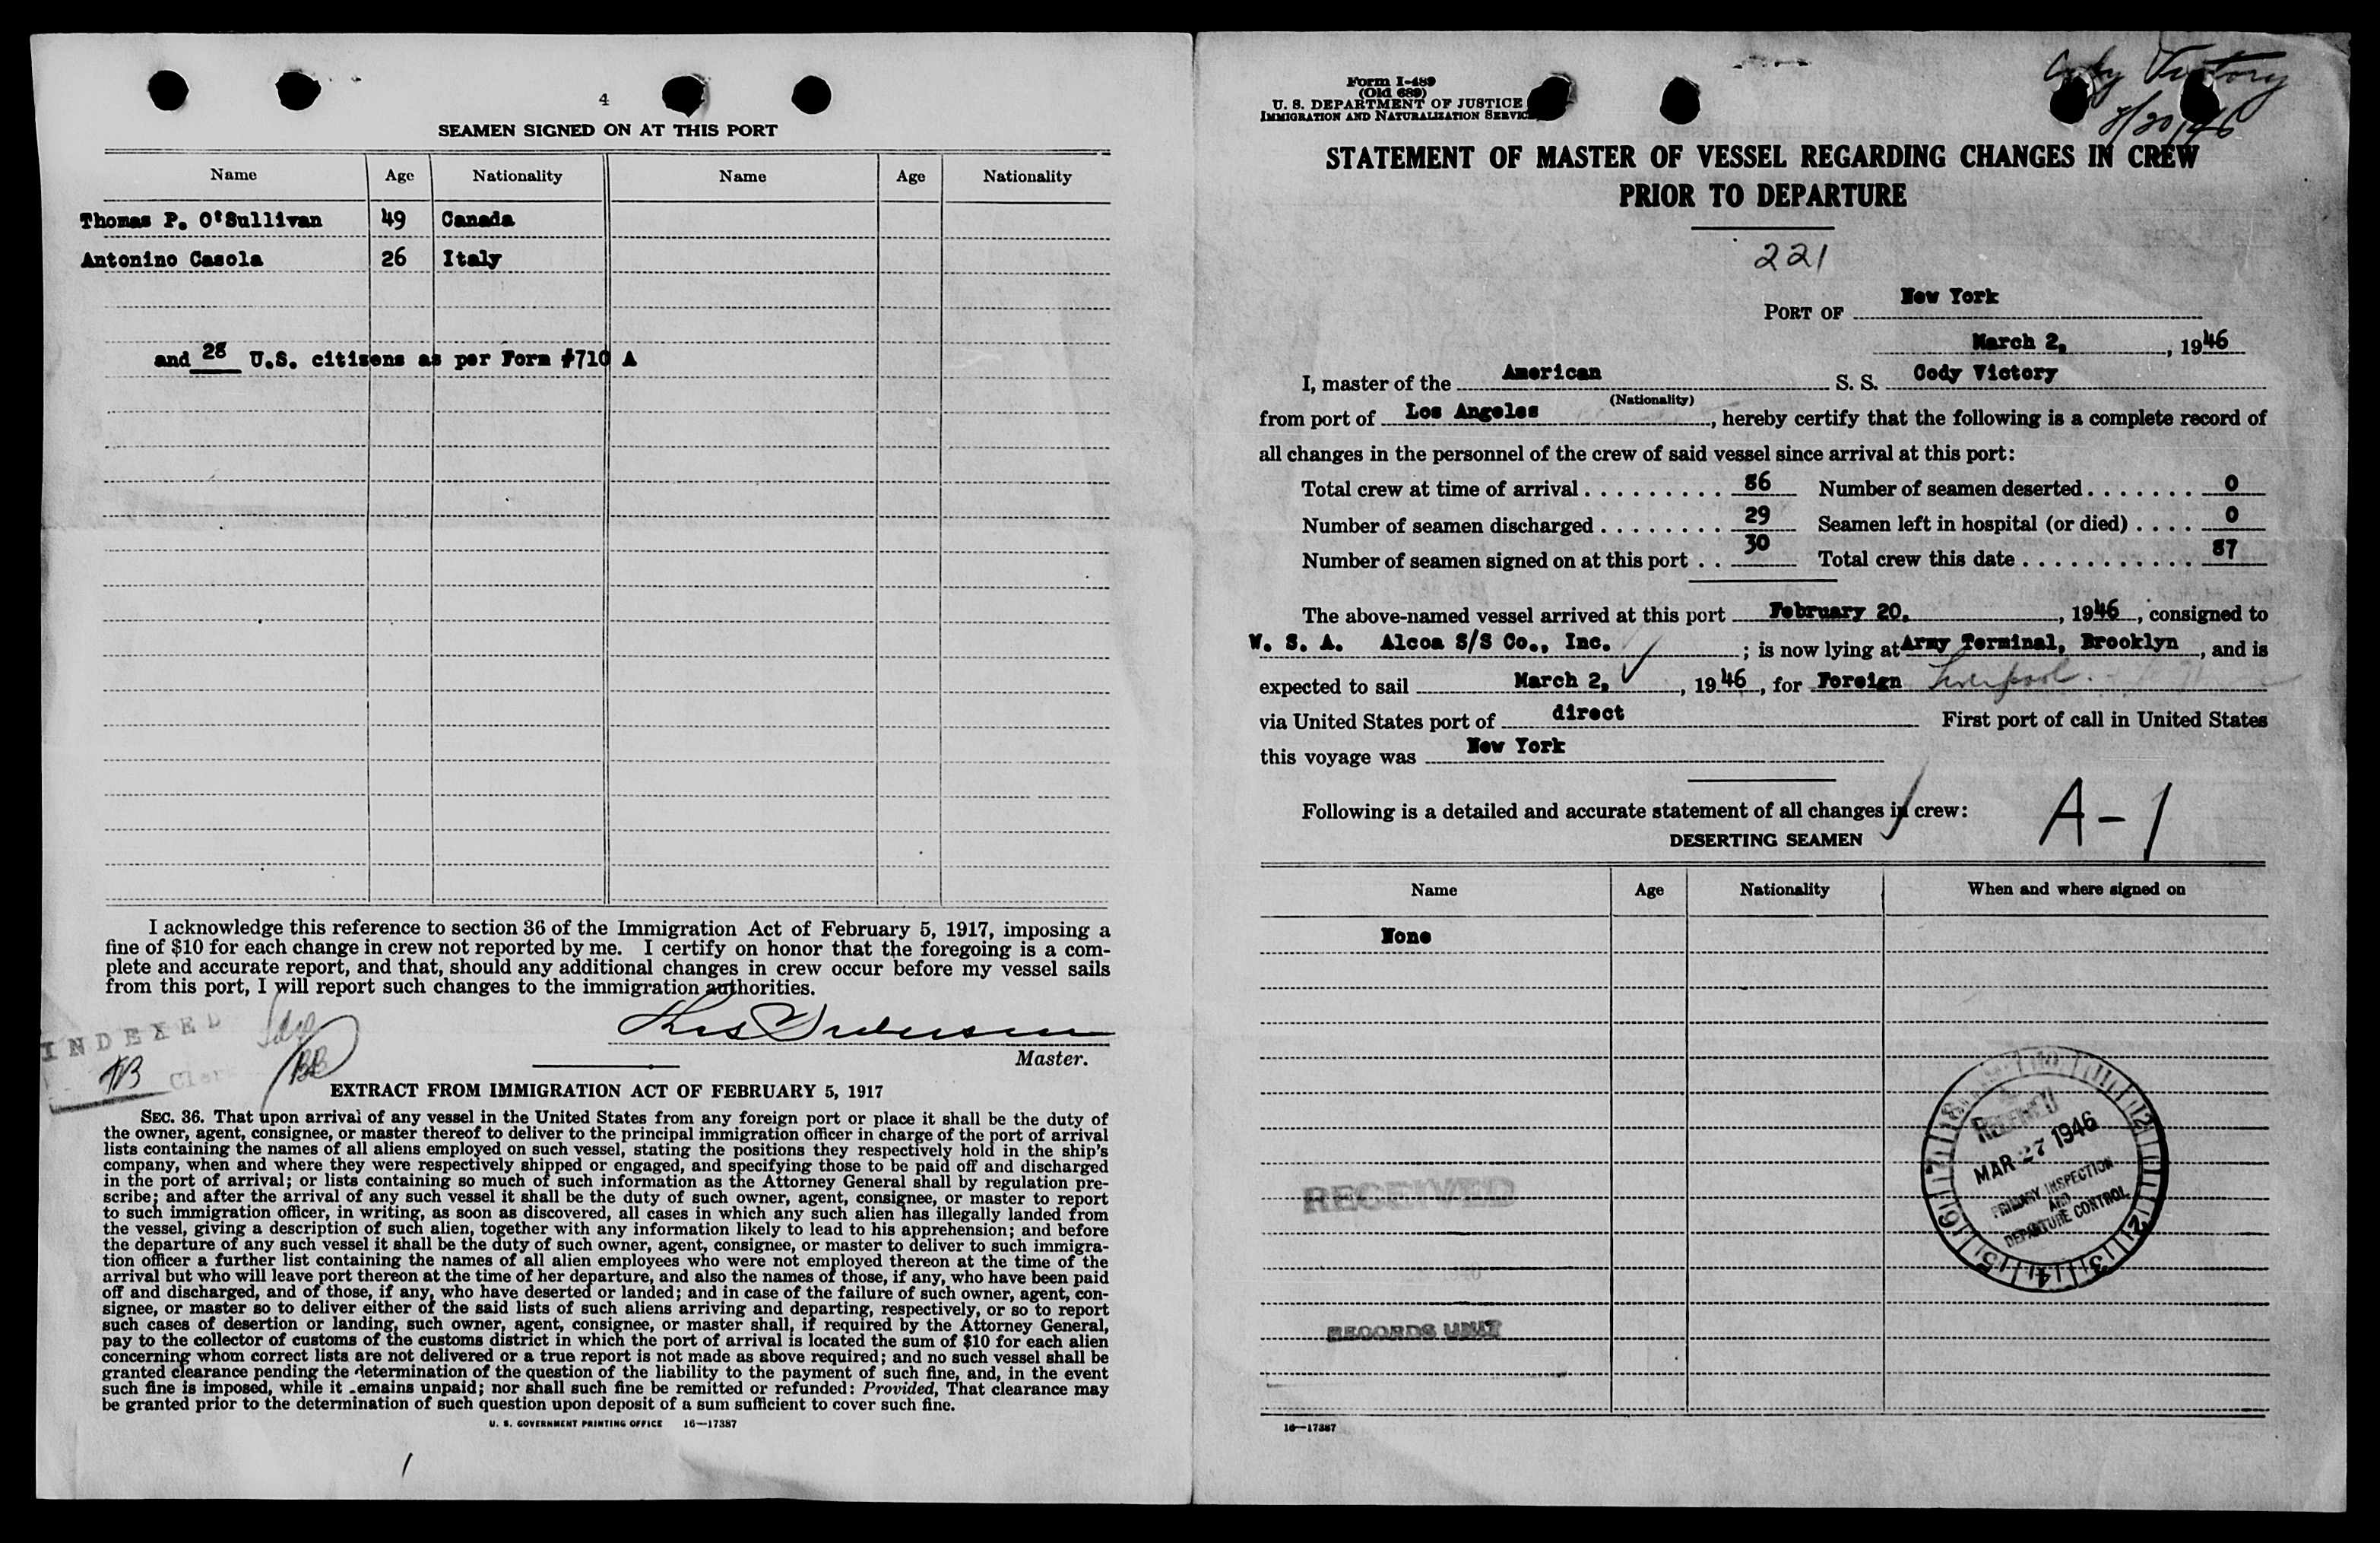 4
SEAMEN SIGNED ON AT THIS PORT
Name Age Nationality Name Age Nationality
Thomas P. O'Sullivan 49 Canada
Antonino Casola 26 Italy
and 28 U.S. citizens as per Form #710 A
I acknowledge this reference to section 36 of the Immigration Act of February 5, 1917, imposing a
fine of $10 for each change in crew not reported by me. I certify on honor that the foregoing is a com-
plete and accurate report, and that, should any additional changes in crew occur before my vessel sails
from this port, I will report such changes to the immigration authorities.
INDEXED
Clerk
Master.
EXTRACT FROM IMMIGRATION ACT OF FEBRUARY 5, 1917
SEC. 36. That upon arrival of any vessel in the United States from any foreign port or place it shall be the duty of
the owner, agent, consignee, or master thereof to deliver to the principal immigration officer in charge of the port of arrival
lists containing the names of all aliens employed on such vessel, stating the positions they respectively hold in the ship's
company, when and where they were respectively shipped or engaged, and specifying those to be paid off and discharged
in the port of arrival; or lists containing so much of such information as the Attorney General shall by regulation pre-
scribe; and after the arrival of any such vessel it shall be the duty of such owner, agent, consignee, or master to report
to such immigration officer, in writing, as soon as discovered, all cases in which any such alien has illegally landed from
the vessel, giving a description of such alien, together with any information likely to lead to his apprehension; and before
the departure of any such vessel it shall be the duty of such owner, agent, consignee, or master to deliver to such immigra-
tion officer a further list containing the names of all alien employees who were not employed thereon at the time of the
arrival but who will leave port thereon at the time of her departure, and also the names of those, if any, who have been paid
off and discharged, and of those, if any, who have deserted or landed; and in case of the failure of such owner, agent, con-
signee, or master so to deliver either of the said lists of such aliens arriving and departing, respectively, or so to report
such cases of desertion or landing, such owner, agent, consignee, or master shall, if required by the Attorney General,
pay to the collector of customs of the customs district in which the port of arrival is located the sum of $10 for each alien
concerning whom correct lists are not delivered or a true report is not made as above required; and no such vessel shall be
granted clearance pending the determination of the question of the liability to the payment of such fine, and, in the event
such fine is imposed, while it remains unpaid; nor shall such fine be remitted or refunded: Provided, That clearance may
be granted prior to the determination of such question upon deposit of a sum sufficient to cover such fine.
U. S. GOVERNMENT PRINTING OFFICE 16—17387
Form I-489
(Old 689)
U. S. DEPARTMENT OF JUSTICE
IMMIGRATION AND NATURALIZATION SERVICE
Cody Victory
2/20/46
STATEMENT OF MASTER OF VESSEL REGARDING CHANGES IN CREW
PRIOR TO DEPARTURE
221
PORT OF New York
March 2, , 1946
I, master of the American S. S. Cody Victory
(Nationality)
from port of Los Angeles, hereby certify that the following is a complete record of
all changes in the personnel of the crew of said vessel since arrival at this port:
Total crew at time of arrival . . . . . . . . . 86 Number of seamen deserted . . . . . . . 0
Number of seamen discharged . . . . . . . . 29 Seamen left in hospital (or died) . . . . 0
Number of seamen signed on at this port . . 30 Total crew this date . . . . . . . . . . . 87
The above-named vessel arrived at this port February 20, , 1946, consigned to
W. S. A. Alcoa S/S Co., Inc. ; is now lying at Army Terminal, Brooklyn, and is
expected to sail March 2, , 1946, for Foreign Liverpool.
via United States port of direct First port of call in United States
this voyage was New York
Following is a detailed and accurate statement of all changes in crew:
A-1
DESERTING SEAMEN
Name Age Nationality When and where signed on
None
RECEIVED
MAR 27 1946
PRIMARY INSPECTION
AND
DEPARTURE CONTROL
RECEIVED
RECORDS UNIT
16—17387